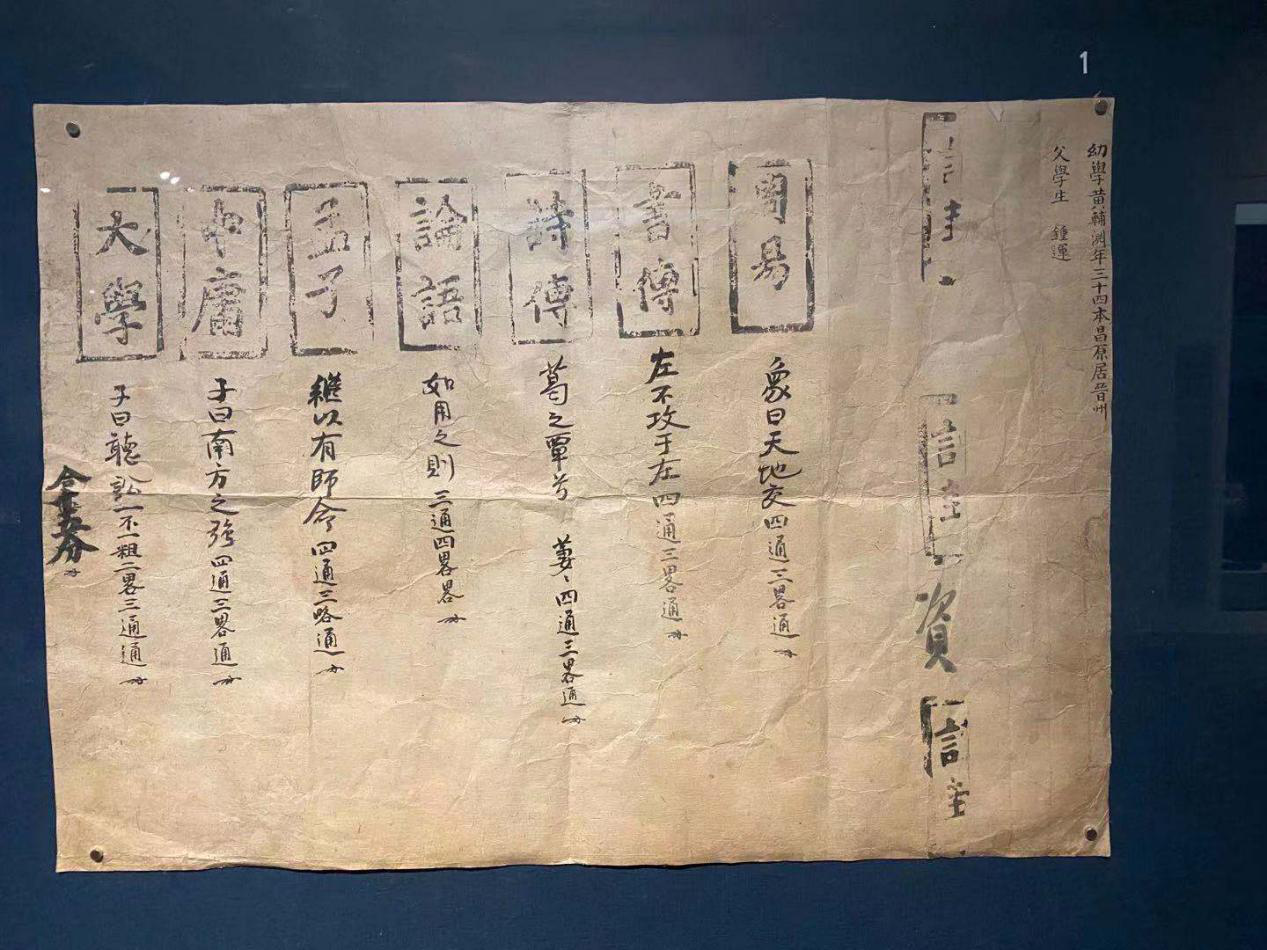 1
幼學黃輔淵年三十四本昌原居晉州
父學生 鍾運
資
周易
彖曰天地交四通三畧通
書傳
左不攻于左四通三畧通
詩傳
葛之覃兮 萋〻四通三畧通
論語
如用之則三通四畧畧
孟子
繼以有師命四通三略通
中庸
子曰南方之强四通三畧通
大學
子曰聽訟一不一粗二畧三通通